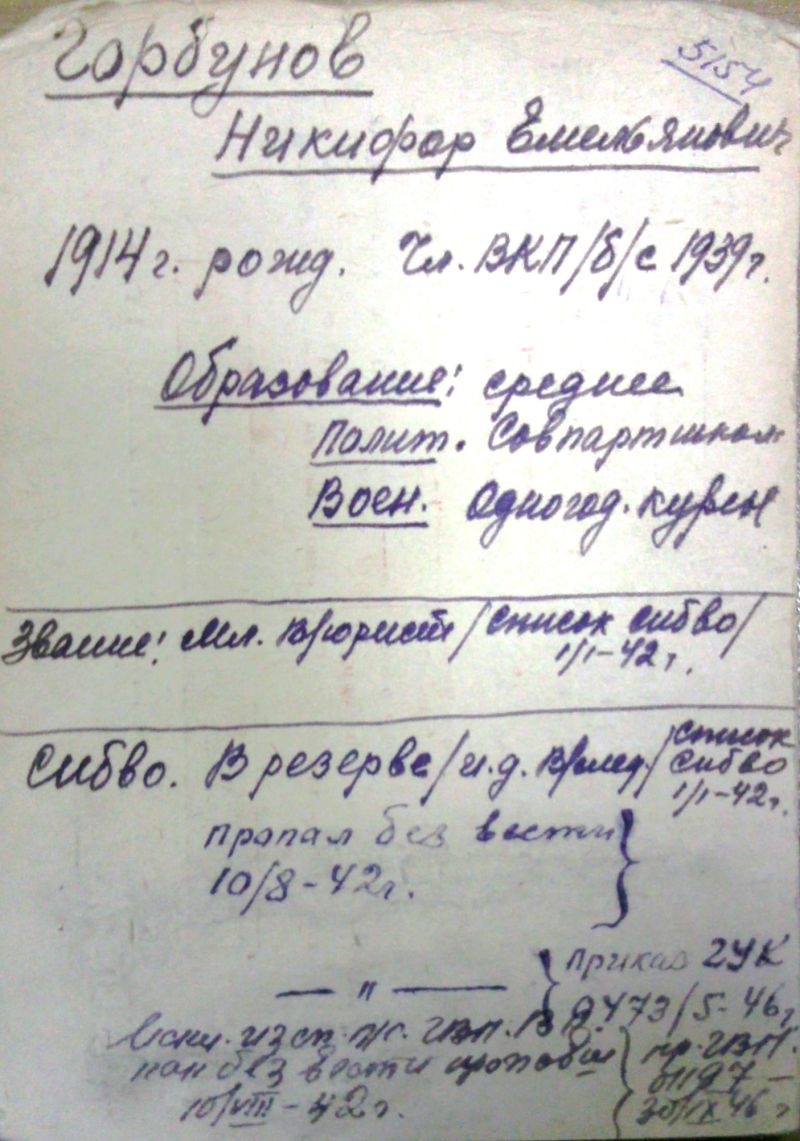 Горбунов
5154
Никифор Емельянович
1914 г. рожд. Чл. ВКП/б/ с 1939 г.
Образование: среднее
Полит. Совпартшкол
Воен. Одногод. курсы
Звание: Мл. В/юрист /список СибВО/
1/I-42 г.
СибВО. В резерве /и.д. В/след./ список
СибВО
1/I-42 г.
пропал без вести
10/8-42 г.
— " — приказ ГУК
0473/5-46 г.
Искл. из сп. ГВП. ВС. пр. ГВП.
как без вести пропавш
10/VIII-42 г. 30/IX 46 г